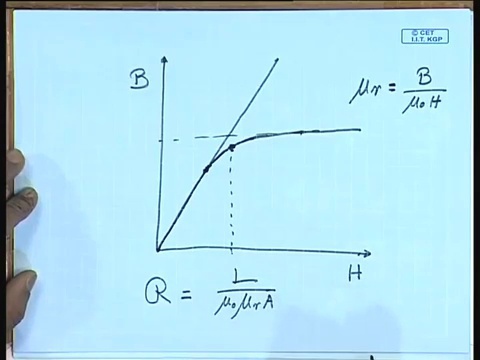 © CET
I.I.T. KGP
B
μr = B / μ₀ H
H
R = L / μ₀ μr A